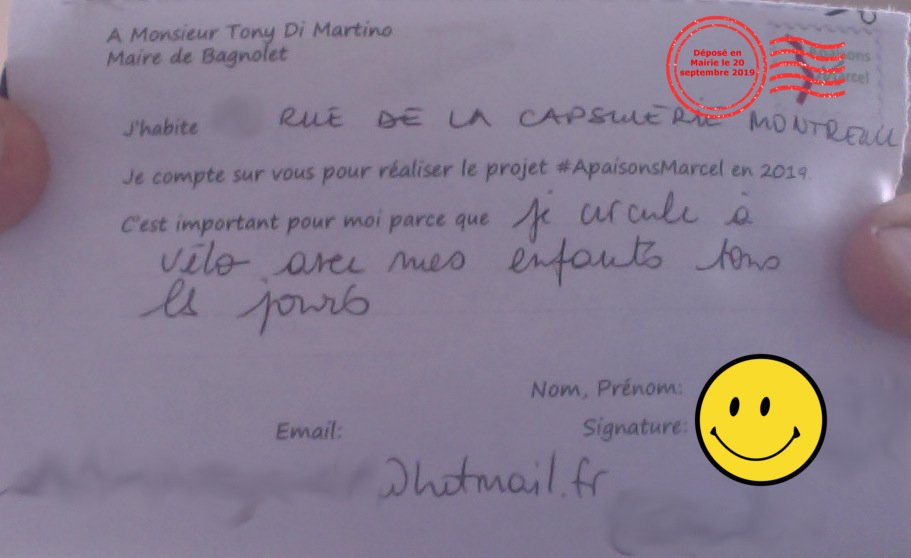 A Monsieur Tony Di Martino
Maire de Bagnolet
Déposé en
Mairie le 20
septembre 2019
Apaisons
Marcel
J'habite RUE DE LA CAPSULERIE MONTREUIL
Je compte sur vous pour réaliser le projet #ApaisonsMarcel en 2019.
C'est important pour moi parce que je circule à
vélo avec mes enfants tous
les jours
Nom, Prénom:
Email:
Signature:
@hotmail.fr